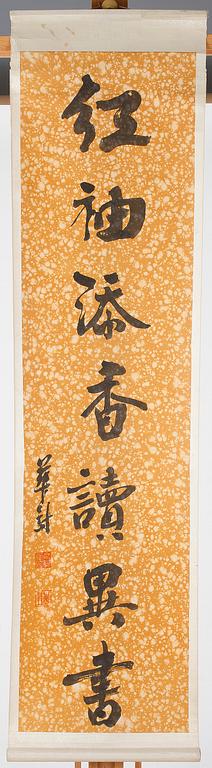 紅袖添香讀異書
華封